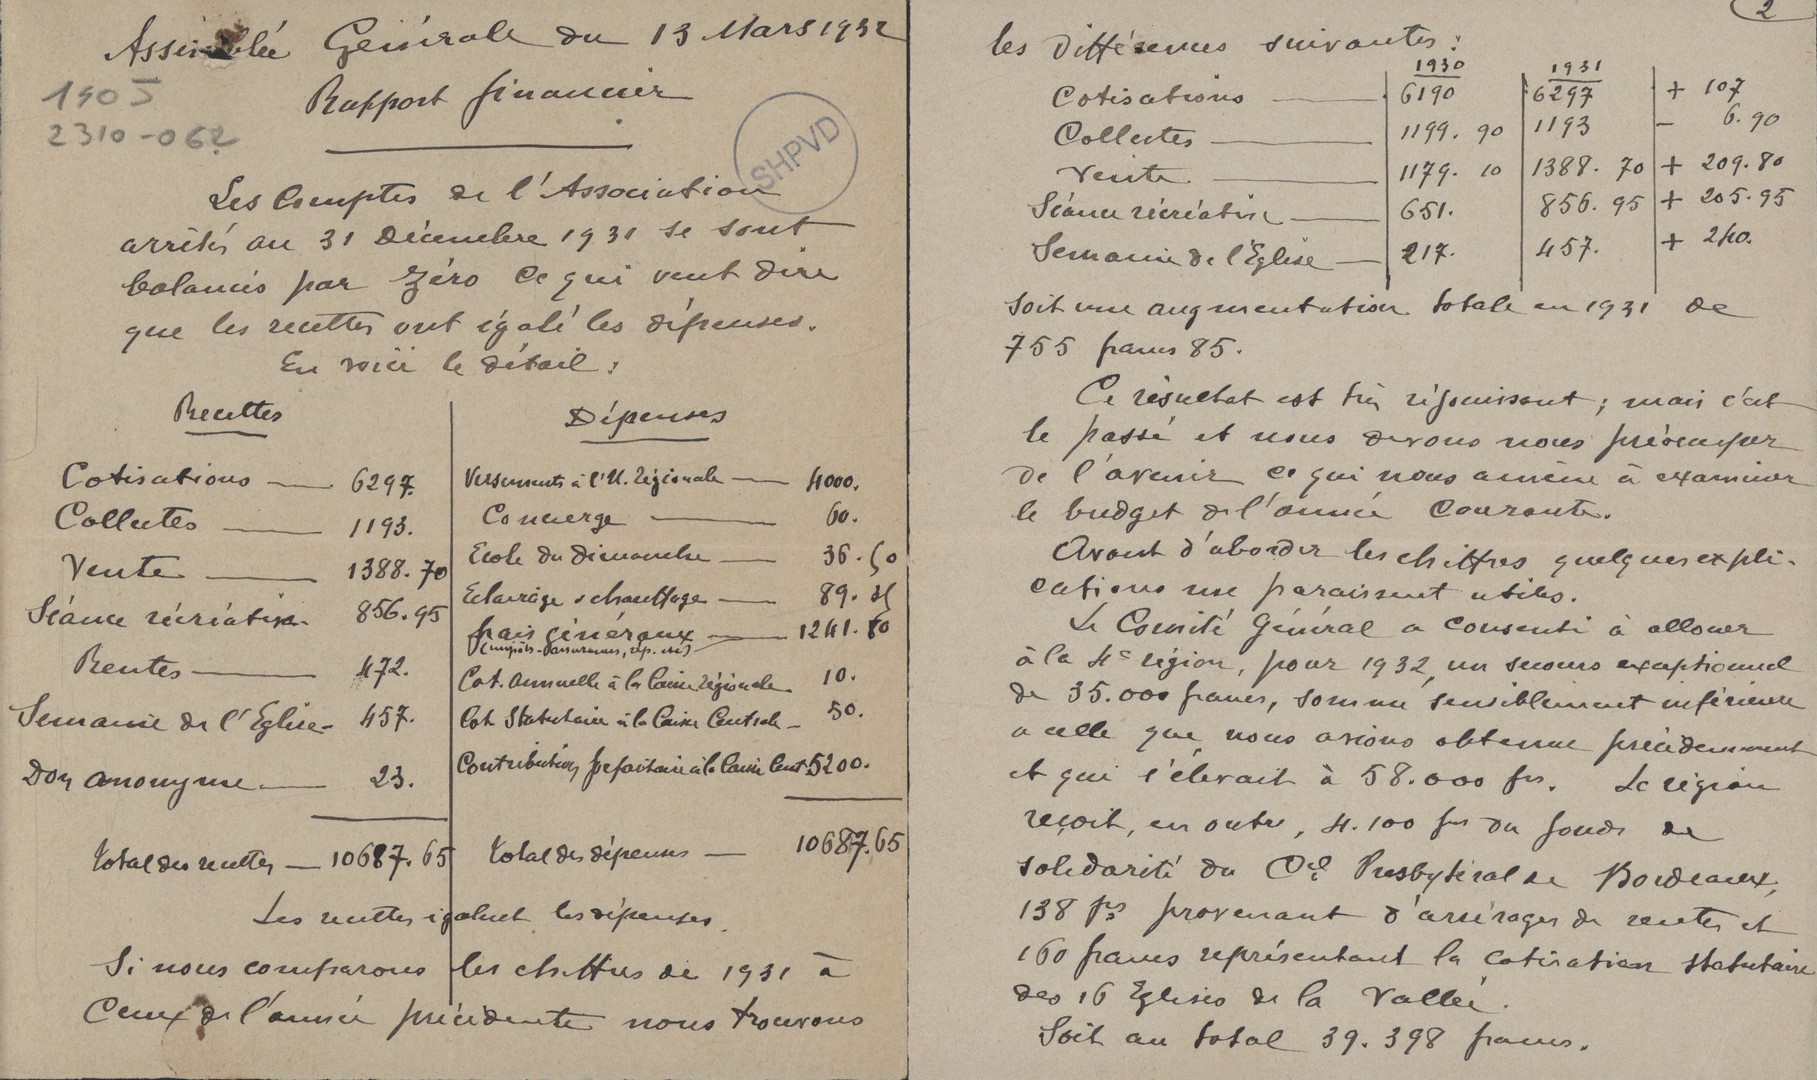 Assemblée Générale du 13 Mars 1932
Rapport financier
190 5
2310-062
SHPVD
Les Comptes de l'Association
arrêtés au 31 Décembre 1931 se sont
balancés par Zéro ce qui veut dire
que les recettes ont égalé les dépenses.
En voici le détail :
Recettes
Cotisations — 6297.
Collectes — 1193.
Vente — 1388.70
Séance récréative — 856.95
Rentes — 472.
Semaine de l'Eglise — 457.
Don anonyme — 23.
Total des recettes — 10687.65
Dépenses
Versements à l'U. régionale — 4000.
Concierge — 60.
Ecole du dimanche — 36.50
Eclairage & chauffage — 89.
frais généraux — 1241.80
(impôts-assurances, rép. etc)
Cot. annuelle à la Caisse régionale 10.
Cot. Statutaire à la Caisse Centrale — 50.
Contribution forfaitaire à la Caisse Cent. 5200.
Total des dépenses — 10687.65
Les recettes égalent les dépenses.
Si nous comparons les chiffres de 1931 à
Ceux de l'année précédente nous trouvons
2
les différences suivantes :
1930 1931
Cotisations — 6190 6297 + 107
Collectes — 1199.90 1193 — 6.90
Vente — 1179.10 1388.70 + 209.80
Séance récréative — 651. 856.95 + 205.95
Semaine de l'Eglise — 217. 457. + 240.
soit une augmentation totale en 1931 de
755 francs 85.
Ce résultat est très réjouissant ; mais c'est
le passé et nous devons nous préoccuper
de l'avenir ce qui nous amène à examiner
le budget de l'année courante.
Avant d'aborder les chiffres quelques expli-
cations me paraissent utiles.
Le Comité Général a consenti à allouer
à la 4e région, pour 1932, un secours exceptionnel
de 35.000 francs, somme sensiblement inférieure
a celle que nous avions obtenue précédemment
et qui s'élevait à 58.000 frs. La région
reçoit, en outre, 4.100 frs du fonds de
solidarité du Cel Presbytéral de Bordeaux,
138 frs provenant d'arrérages de rentes et
160 francs représentant la cotisation statutaire
des 16 Eglises de la Vallée.
Soit au total 39.398 francs.